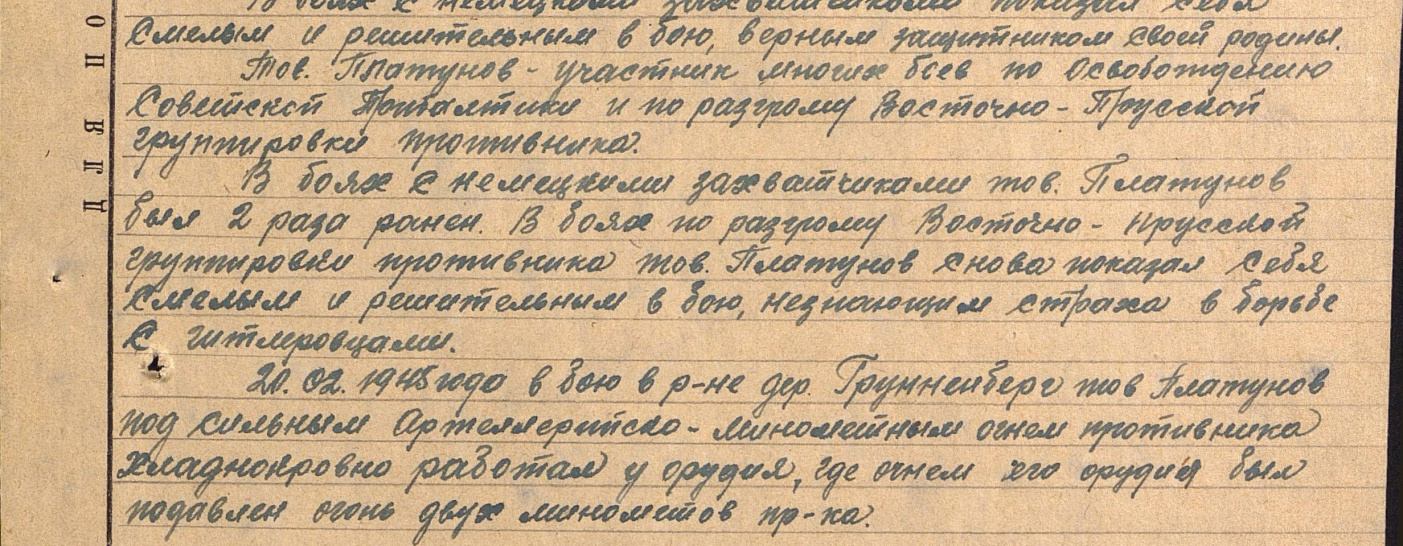 В боях с немецкими захватчиками показал себя
смелым и решительным в бою, верным защитником своей родины.
Тов. Платунов - участник многих боев по Освобождению
Советской Прибалтики и по разгрому Восточно - Прусской
группировки противника.
В боях с немецкими захватчиками тов. Платунов
был 2 раза ранен. В боях по разгрому Восточно - Прусской
группировки противника тов. Платунов снова показал себя
смелым и решительным в бою, незнающим страха в борьбе
с гитлеровцами.
20.02.1945 года в бою в р-не дер. Грунненберг тов Платунов
под сильным Артеллерийско - минометным огнем противника
хладнокровно работал у орудия, где огнем его орудия был
подавлен огонь двух минометов пр-ка.